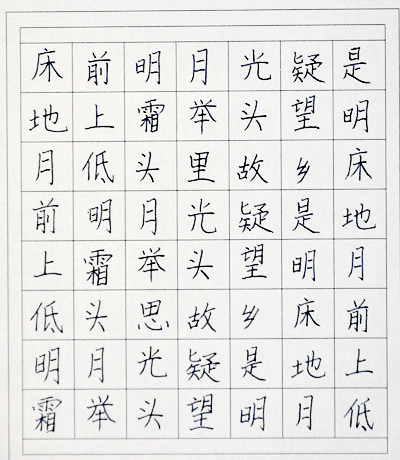 床前明月光疑是
地上霜举头望明
月低头里故乡床
前明月光疑是地
上霜举头望明月
低头思故乡床前
明月光疑是地上
霜举头望明月低